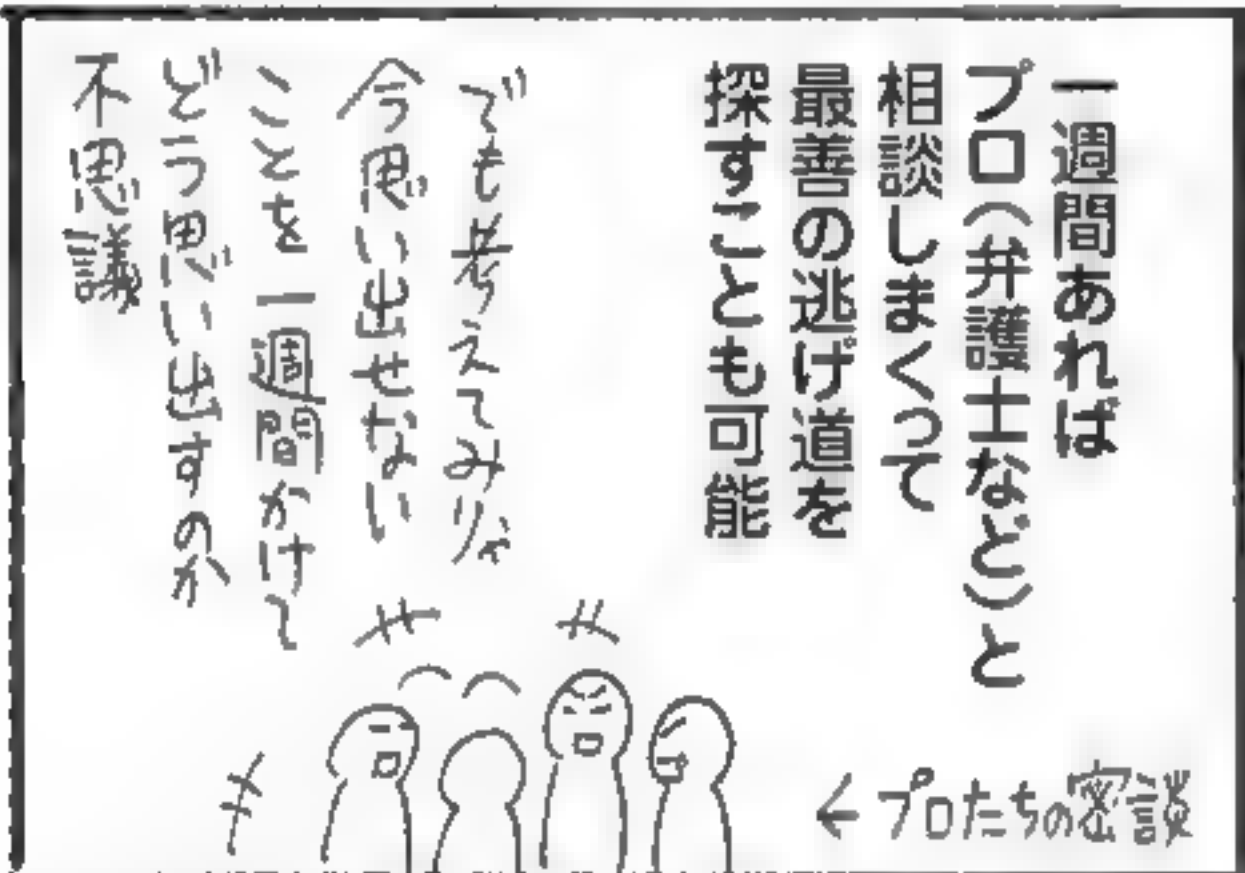 一週間あれば
プロ(弁護士など)と
相談しまくって
最善の逃げ道を
探すことも可能
でも考えてみりゃ
今思い出せない
ことを一週間かけて
どう思い出すのか
不思議
←プロたちの密談